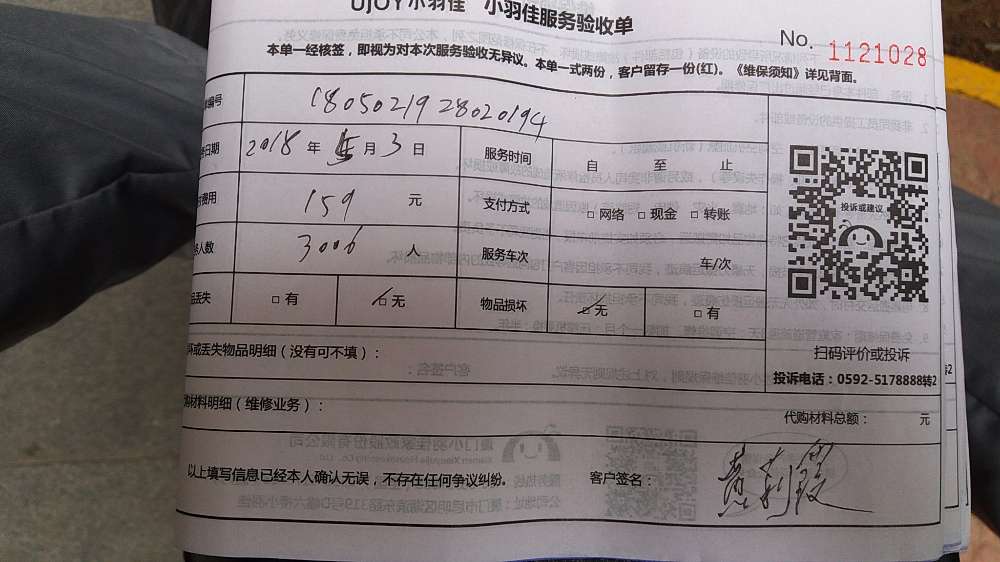 UJOY小羽佳 小羽佳服务验收单
No. 1121028
本单一经核签，即视为对本次服务验收无异议。本单一式两份，客户留存一份(红)。《维保须知》详见背面。
编号 1805021928020194
日期 2018年5月3日 服务时间 自 至 止
费用 159 元 支付方式 □网络 □现金 □转账
人数 3006 人 服务车次 车/次
丢失 □有 □无 物品损坏 □无 □有
投诉或建议
扫码评价或投诉
投诉电话：0592-5178888转2
坏或丢失物品明细（没有可不填）：
购材料明细（维修业务）：
代购材料总额： 元
以上填写信息已经本人确认无误，不存在任何争议纠纷。 客户签名：